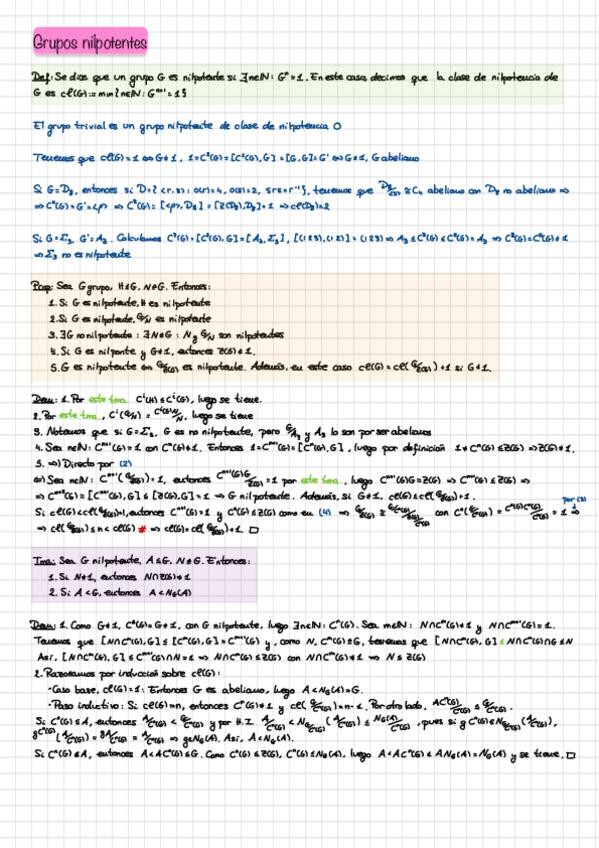 Grupos nilpotentes
Def: Se dice que un grupo G es nilpotente si ∃n∈ℕ: Gⁿ=1. En este caso, decimos que la clase de nilpotencia de
G es cl(G):= min{n∈ℕ: Gⁿ⁺¹=1}
El grupo trivial es un grupo nilpotente de clase de nilpotencia 0
Tenemos que cl(G)=1 ⇔ G≠1, 1=C²(G)=[C¹(G),G]=[G,G]=G' ⇔ G≠1, G abeliano
Si G=D₈, entonces si D=⟨r,s: o(r)=4, o(s)=2, srs=r⁻¹⟩, tenemos que abeliano con D₈ no abeliano ⇒
Si G=Σ₃, G'=A₃. Calculamos C³(G)=[C²(G),G]=[A₃,Σ₃], [(123),(12)]=(123) ⇒ A₃≤C³(G)≤C²(G)=A₃ ⇒ C³(G)=C²(G)≠1
⇒ Σ₃ no es nilpotente
Prop: Sea G grupo, H≤G, N⊴G. Entonces:
1. Si G es nilpotente, H es nilpotente
2. Si G es nilpotente, G/N es nilpotente
3. ∃G no nilpotente: ∃N⊴G: N y G/N son nilpotentes
4. Si G es nilponte y G≠1, entonces Z(G)≠1.
5. G es nilpotente ⇔ G/Z(G) es nilpotente. Además, en este caso cl(G)=cl(G/Z(G))+1 si G≠1.
Dem: 1. Por este tma. Cⁱ(H)≤Cⁱ(G), luego se tiene.
2. Por este tma., Cⁱ(G/N)=Cⁱ(G)N/N, luego se tiene
3. Notamos que si G=Σ₃, G no es nilpotente, pero G/A₃ y A₃ lo son por ser abelianos
4. Sea n∈ℕ: Cⁿ⁺¹(G)=1 con Cⁿ(G)≠1. Entonces 1=Cⁿ⁺¹(G)=[Cⁿ(G),G], luego por definición 1≠Cⁿ(G)≤Z(G) ⇒ Z(G)≠1.
5. ⇒) Directo por (2)
⇐) Sea n∈ℕ: Cⁿ⁺¹(G/Z(G))=1, entonces =1 por este tma., luego ⇒ Cⁿ⁺¹(G)≤Z(G) ⇒
⇒ =[Cⁿ⁺¹(G),G]≤[Z(G),G]=1 ⇒ G nilpotente. Además, si G≠1, cl(G)≤cl(G/Z(G))+1.
Si entonces y como en (4) ⇒ con =1 ⇒ por (3)
⇒ # ⇒ cl(G)=cl(G/Z(G))+1. □
Tma: Sea G nilpotente, A≤G, N⊴G. Entonces:
1. Si N≠1, entonces N∩Z(G)≠1
2. Si A<G, entonces A<N_G(A)
Dem: 1. Como G≠1, C¹(G)=G≠1, con G nilpotente, luego ∃n∈ℕ: Cⁿ(G). Sea m∈ℕ: N∩Cᵐ(G)≠1 y N∩Cᵐ⁺¹(G)=1.
Tenemos que [N∩Cᵐ(G),G]≤[Cᵐ(G),G]=Cᵐ⁺¹(G) y, como N, Cᵐ(G)⊴G, tenemos que [N∩Cᵐ(G),G]≤N∩Cᵐ(G)∩G≤N
Así, [N∩Cᵐ(G),G]≤Cᵐ⁺¹(G)∩N=1 ⇒ N∩Cᵐ(G)≤Z(G) con N∩Cᵐ(G)≠1 ⇒ N≤Z(G)
2. Razonamos por inducción sobre cl(G):
·Caso base, cl(G)=1: Entonces G es abeliano, luego A<N_G(A)=G.
·Paso inductivo: Si cl(G)=n, entonces Cⁿ(G)≠1 y cl(G/Cⁿ(G))=n-1. Por otro lado,
Si Cⁿ(G)≤A, entonces A/Cⁿ(G)<G/Cⁿ(G) y por H.I. pues si
⇒ g∈N_G(A). Así, A<N_G(A).
Si Cⁿ(G)≰A, entonces A<ACⁿ(G)≤G. Como Cⁿ(G)≤Z(G), Cⁿ(G)≤N_G(A), luego A<ACⁿ(G)≤AN_G(A)=N_G(A) y se tiene. □